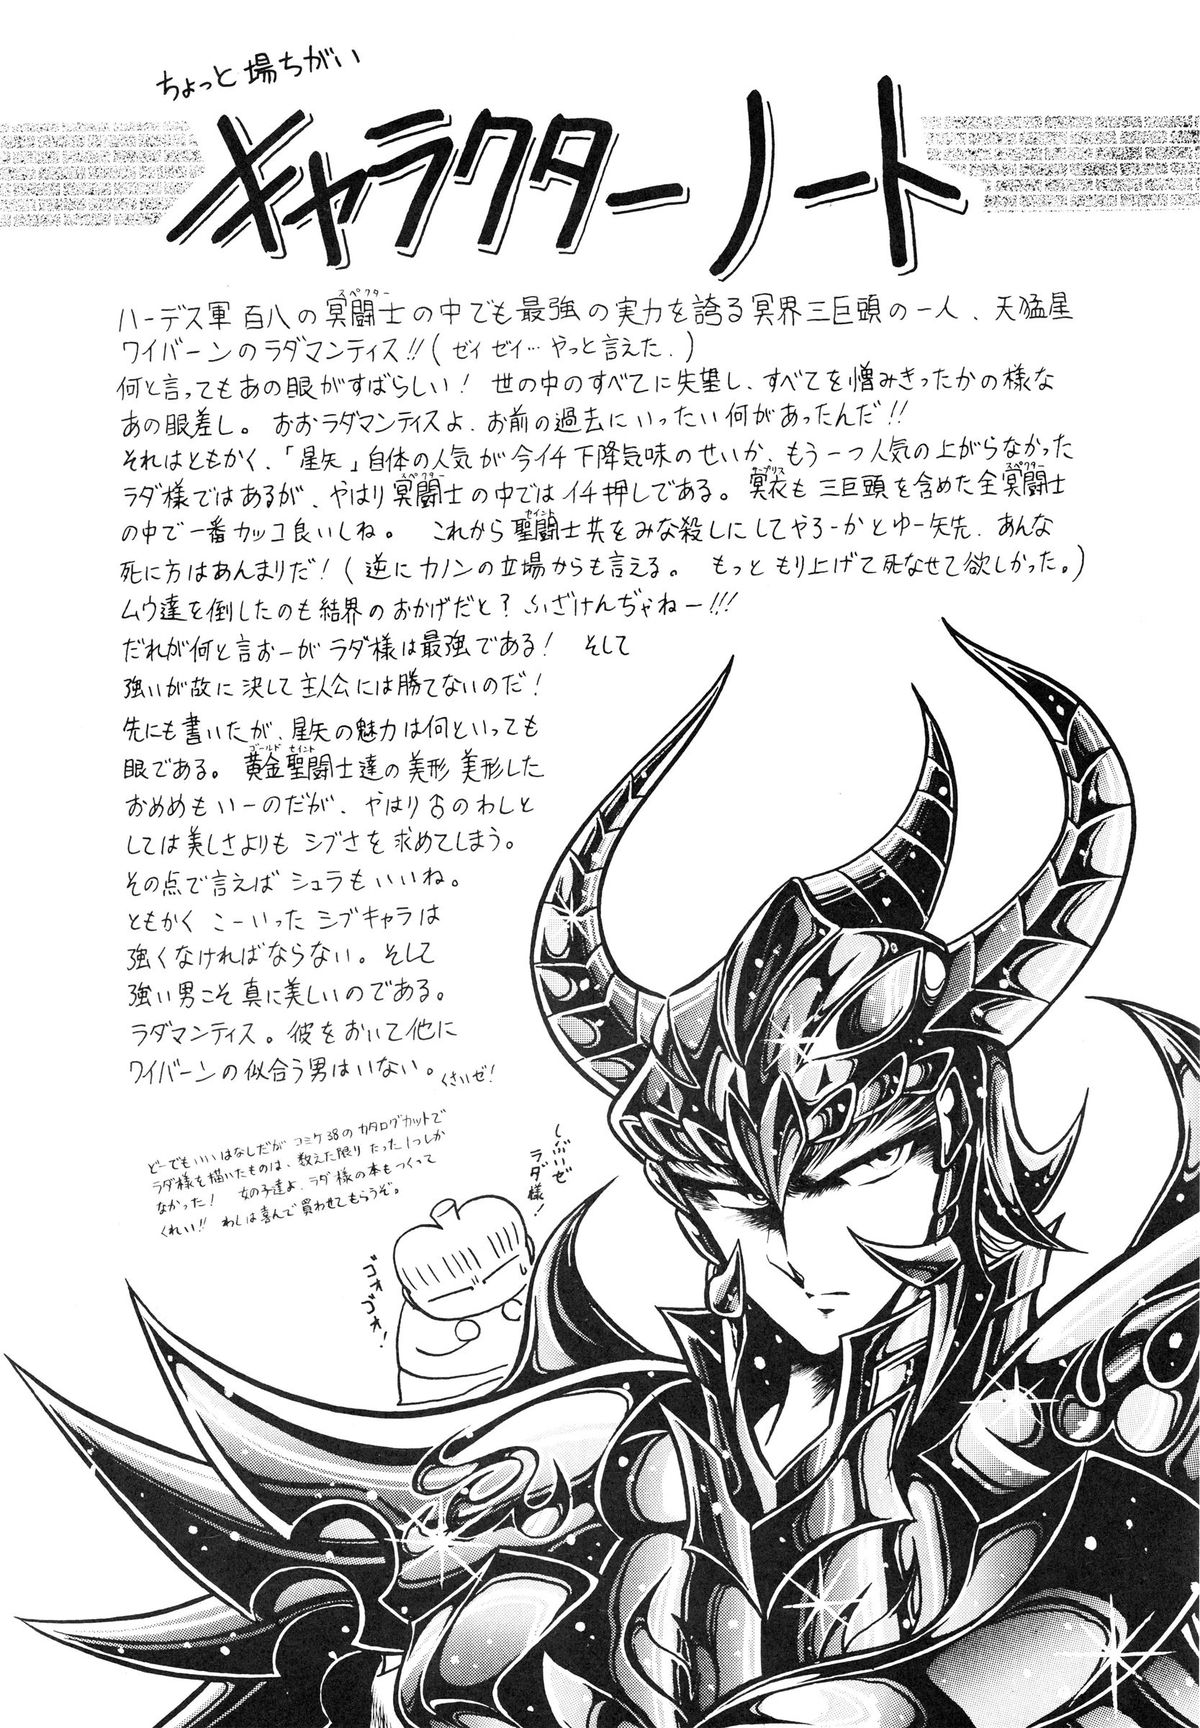 ちょっと場ちがい
キャラクターノート
ハーデス軍百八の冥闘士の中でも最強の実力を誇る冥界三巨頭の一人、天猛星
スペクター
ワイバーンのラダマンティス!!(ゼイゼイ…やっと言えた.)
何と言ってもあの眼がすばらしい! 世の中のすべてに失望し、すべてを憎みきったかの様な
あの眼差し。おおラダマンティスよ、お前の過去にいったい何があったんだ!!
それはともかく、「星矢」自体の人気が今イチ下降気味のせいか、もう一つ人気の上がらなかった
ラダ様ではあるが、やはり冥闘士の中ではイチ押しである。冥衣も三巨頭を含めた全冥闘士
スペクター
サープリス
スペクター
の中で一番カッコ良いしね。 これから聖闘士共をみな殺しにしてやろーかとゆー矢先、あんな
セイント
死に方はあんまりだ!(逆にカノンの立場からも言える。 もっともり上げて死なせて欲しかった。)
ムウ達を倒したのも結界のおかげだと?ふざけんぢゃねー!!!
だれが何と言おーがラダ様は最強である! そして
強いが故に決して主人公には勝てないのだ!
先にも書いたが、星矢の魅力は何といっても
眼である。黄金聖闘士達の美形美形した
ゴールド セイント
おめめもいーのだが、やはり♂のわしと
しては美しさよりもシブさを求めてしまう。
その点で言えばシュラもいいね。
ともかくこーいったシブキャラは
強くなければならない。そして
強い男こそ真に美しいのである。
ラダマンティス。彼をおいて他に
ワイバーンの似合う男はいない。くさいぜ!
どーでもいいはなしだがコミケ38のカタログカットで
ラダ様を描いたものは、数えた限りたった1つしか
なかった! 女の子達よ、ラダ様の本もつくって
くれい!! わしは喜んで買わせてもらうぞ。
しぶいぜ
ラダ様!
ゴォゴォ!